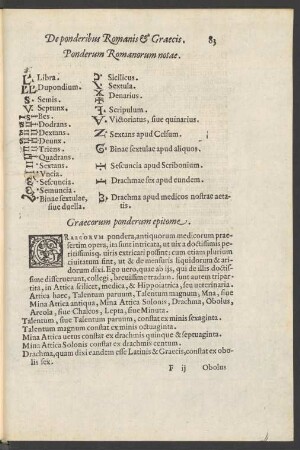 De ponderibus Romanis & Græcis. 83
Ponderum Romanorum notæ.
Libra.
Dupondium.
S. Semis.
Septunx.
Bes.
Dodrans.
Dextans.
Deunx.
Triens.
Quadrans.
Sextans.
Vncia.
Sescuncia.
Semuncia.
Binæ sextulæ, siue duella.
Sicilicus.
Sextula.
Denarius.
Scripulum.
V Victoriatus, siue quinarius.
Z Sextans apud Celsum.
Binæ sextulæ apud aliquos.
Sescuncia apud Scribonium.
Drachmæ sex apud eundem.
Drachma apud medicos nostræ ætatis.
Græcorum ponderum epitome.
GRAECORVM pondera, antiquorum medicorum præ-
sertim opera, ita sunt intricata, ut uix a doctissimis pe-
ritissimisq́; uiris extricari possint: cum etiam plurium
ciuitatum sint, ut & de mensuris liquidorum & ari-
dorum dixi. Ego uero, quæ ab ijs, qui de illis doctis-
sime disseruerunt, collegi, breuissime tradam. sunt autem tri-
ta, in Attica scilicet, medica, & Hippoiatrica, seu ueterinaria.
Attica hæc, Talentum paruum, Talentum magnum, Mna, siue
Mina Attica antiqua, Mina Attica Solonis, Drachma, Obolus,
Areola, siue Chalcos, Lepta, siue Minuta.
Talentum, siue Talentum paruum, constat ex minis sexaginta.
Talentum magnum constat ex minis octuaginta.
Mina Attica uetus constat ex drachmis quinque & septuaginta.
Mina Attica Solonis constat ex drachmis centum.
Drachma, quam dixi eandem esse Latinis & Græcis, constat ex obo-
lis sex.
F ij Obolus